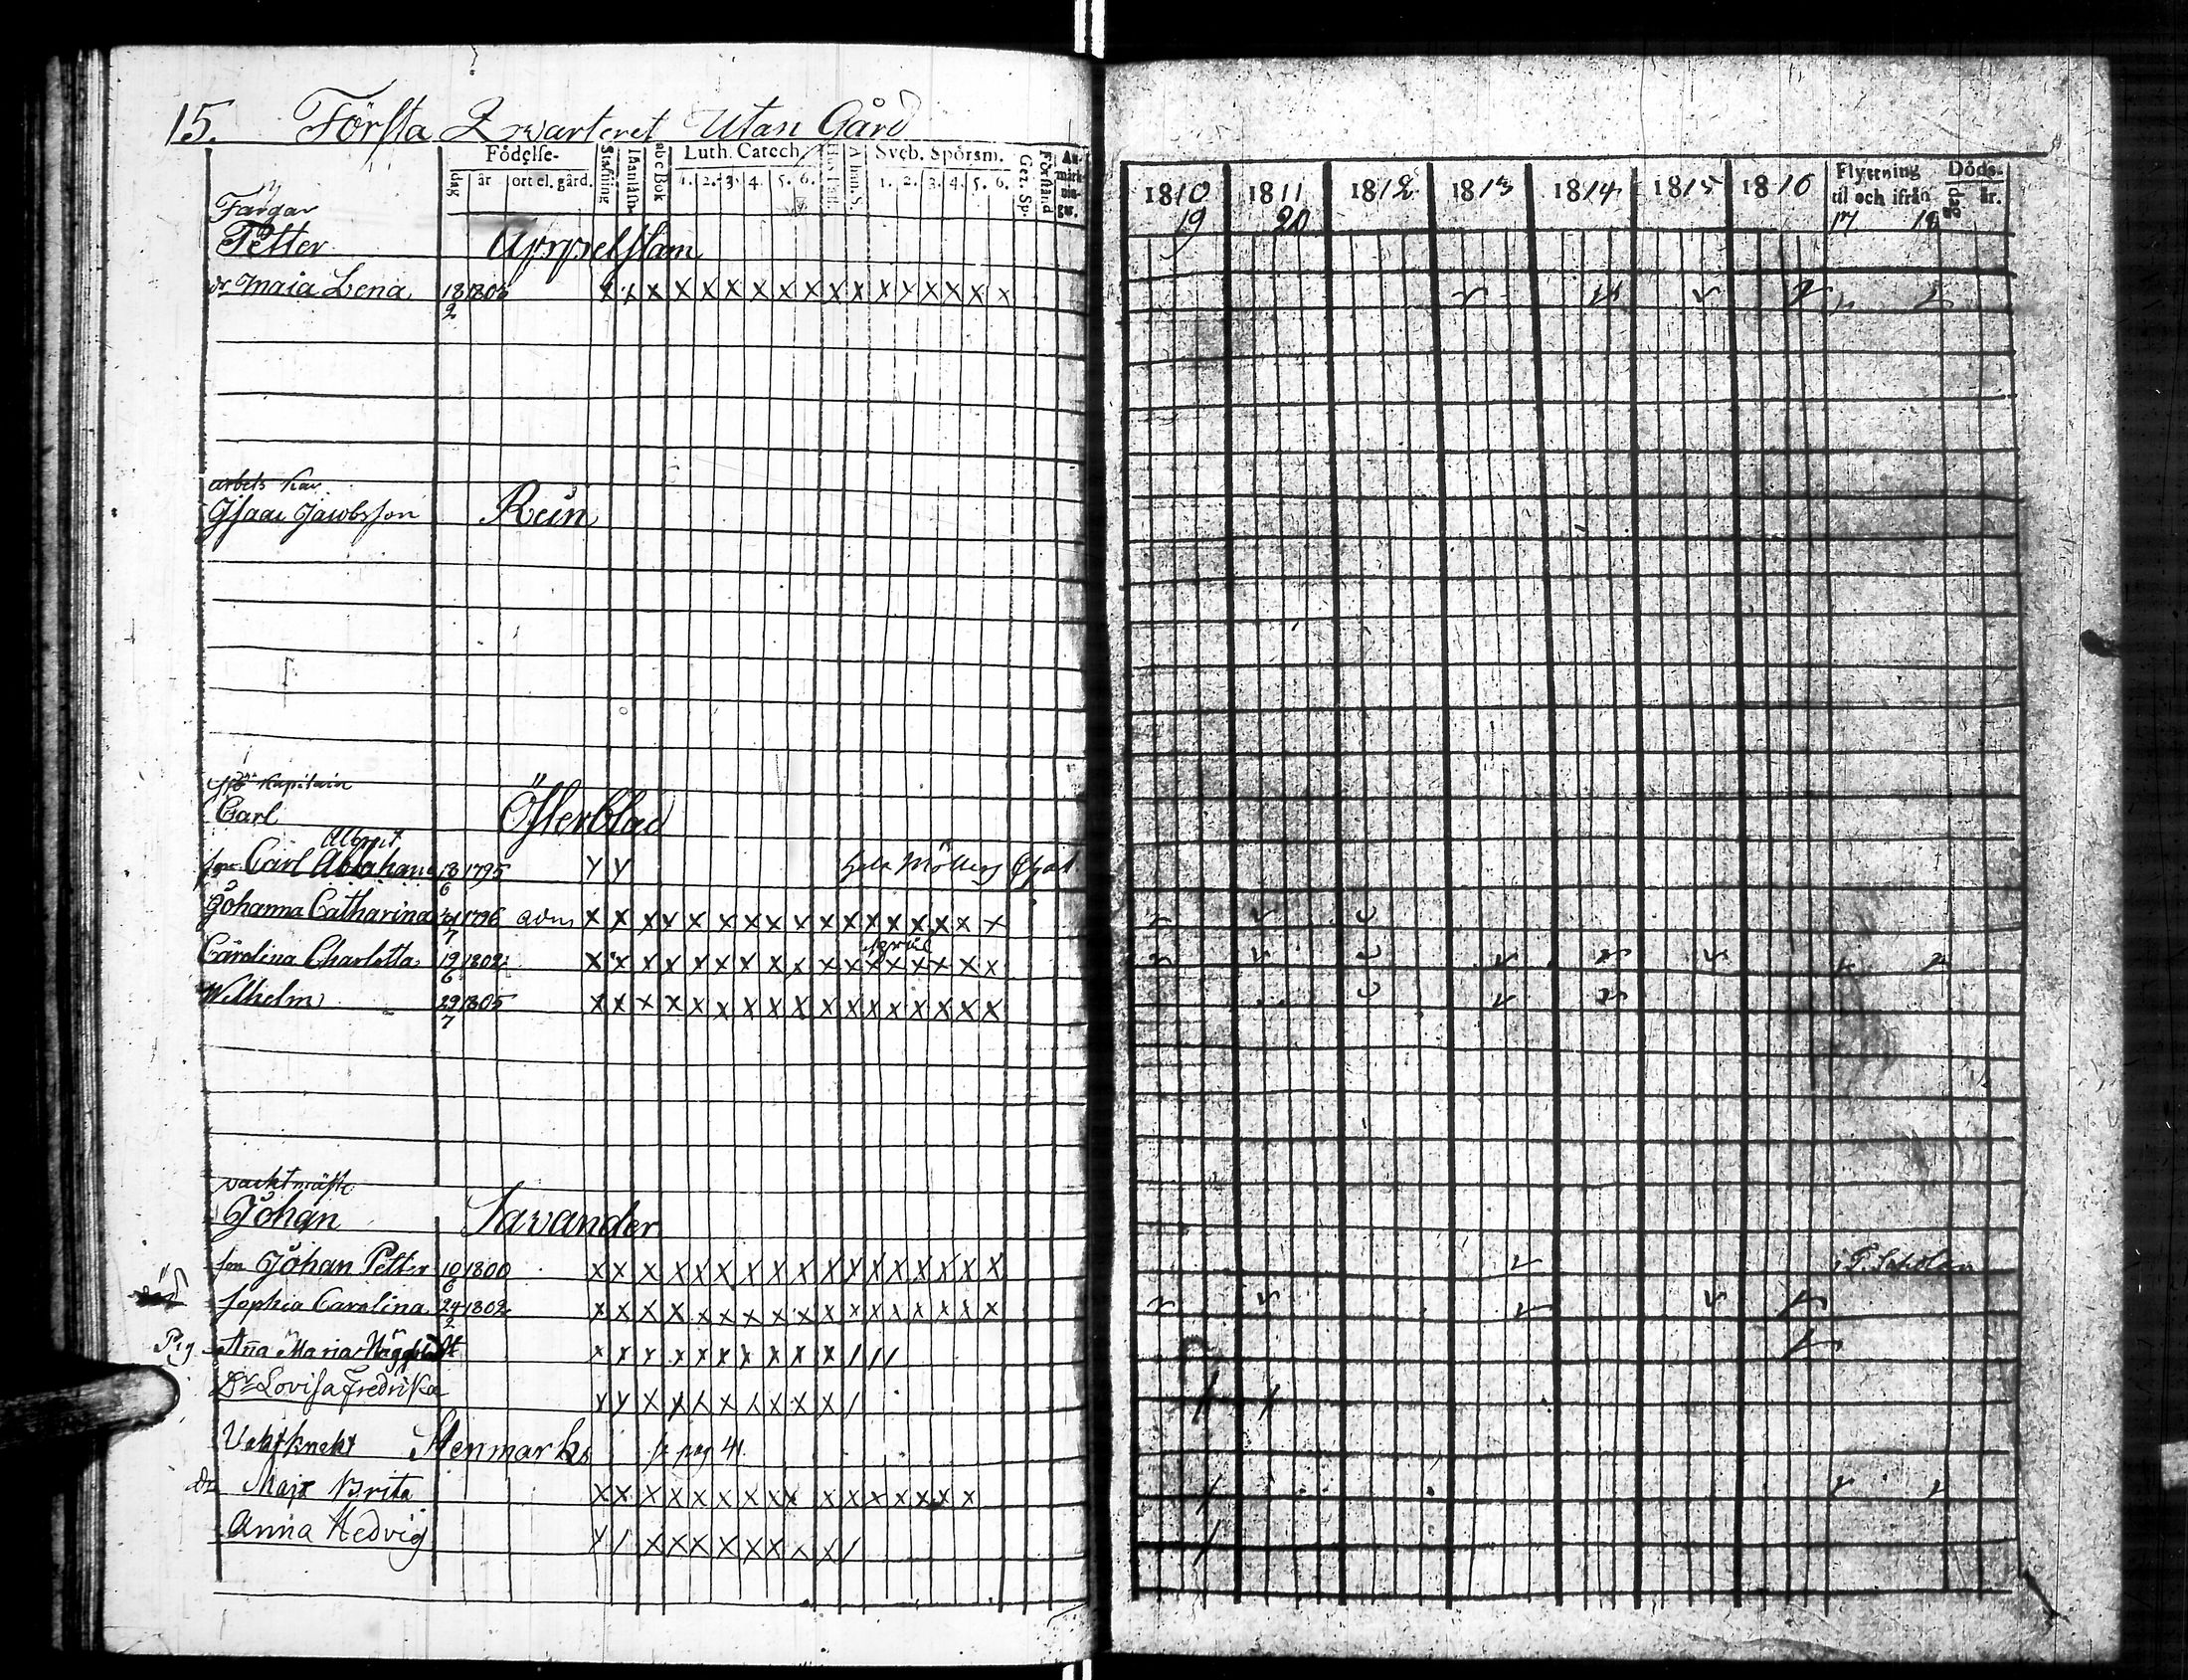 15. Första Qvarteret Utan Gård
Födelse-
dag år ort el. gård.
Stafning
abc Bok
Luth. Catech.
1. 2. 3. 4. 5. 6.
Athan. S.
Sveb. Spörsm.
1. 2. 3. 4. 5. 6.
Gez. Sp.
Förstånd
An-
märk-
nin-
gar.
1810 1811 1812 1813 1814 1815 1816
19 20
Flyttning
til och ifrån
17 18
Döds-
dag år.
Färgar
Petter Appelstam
dr Maia Lena 18 1803 x x x x x x x x x x x x x x x x x
2
arbets kar
Isaac Jacobsson Rein
Kapitain
Carl Österblad
Albrert
son Carl Abraham 13 1795 y y
6
Johanna Catharina 21 1796 adm x x x x x x x x x x x x x x x x x
7
Carolina Charlotta 19 1802 x x x x x x x x x x x x x x x x x
6
Wilhelm 29 1805 x x x x x x x x x x x x x x x x x
7
vacktmäst
Johan Savander
son Johan Petter 10 1800 x x x x x x x x x x x x x x x x x i T. Scholan
6
död Sophia Carolina 24 1802 x x x x x x x x x x x x x x x x x
2
Pig Aña Maria x x x x x x x x x x / / /
Dr Lovisa Fredrika y y x x x x x x x x /
Stenmarks se pag 41
Dr Maja Brita x x x x x x x x x x x x x x x x
Anna Hedvig y / x x x x x x x x /